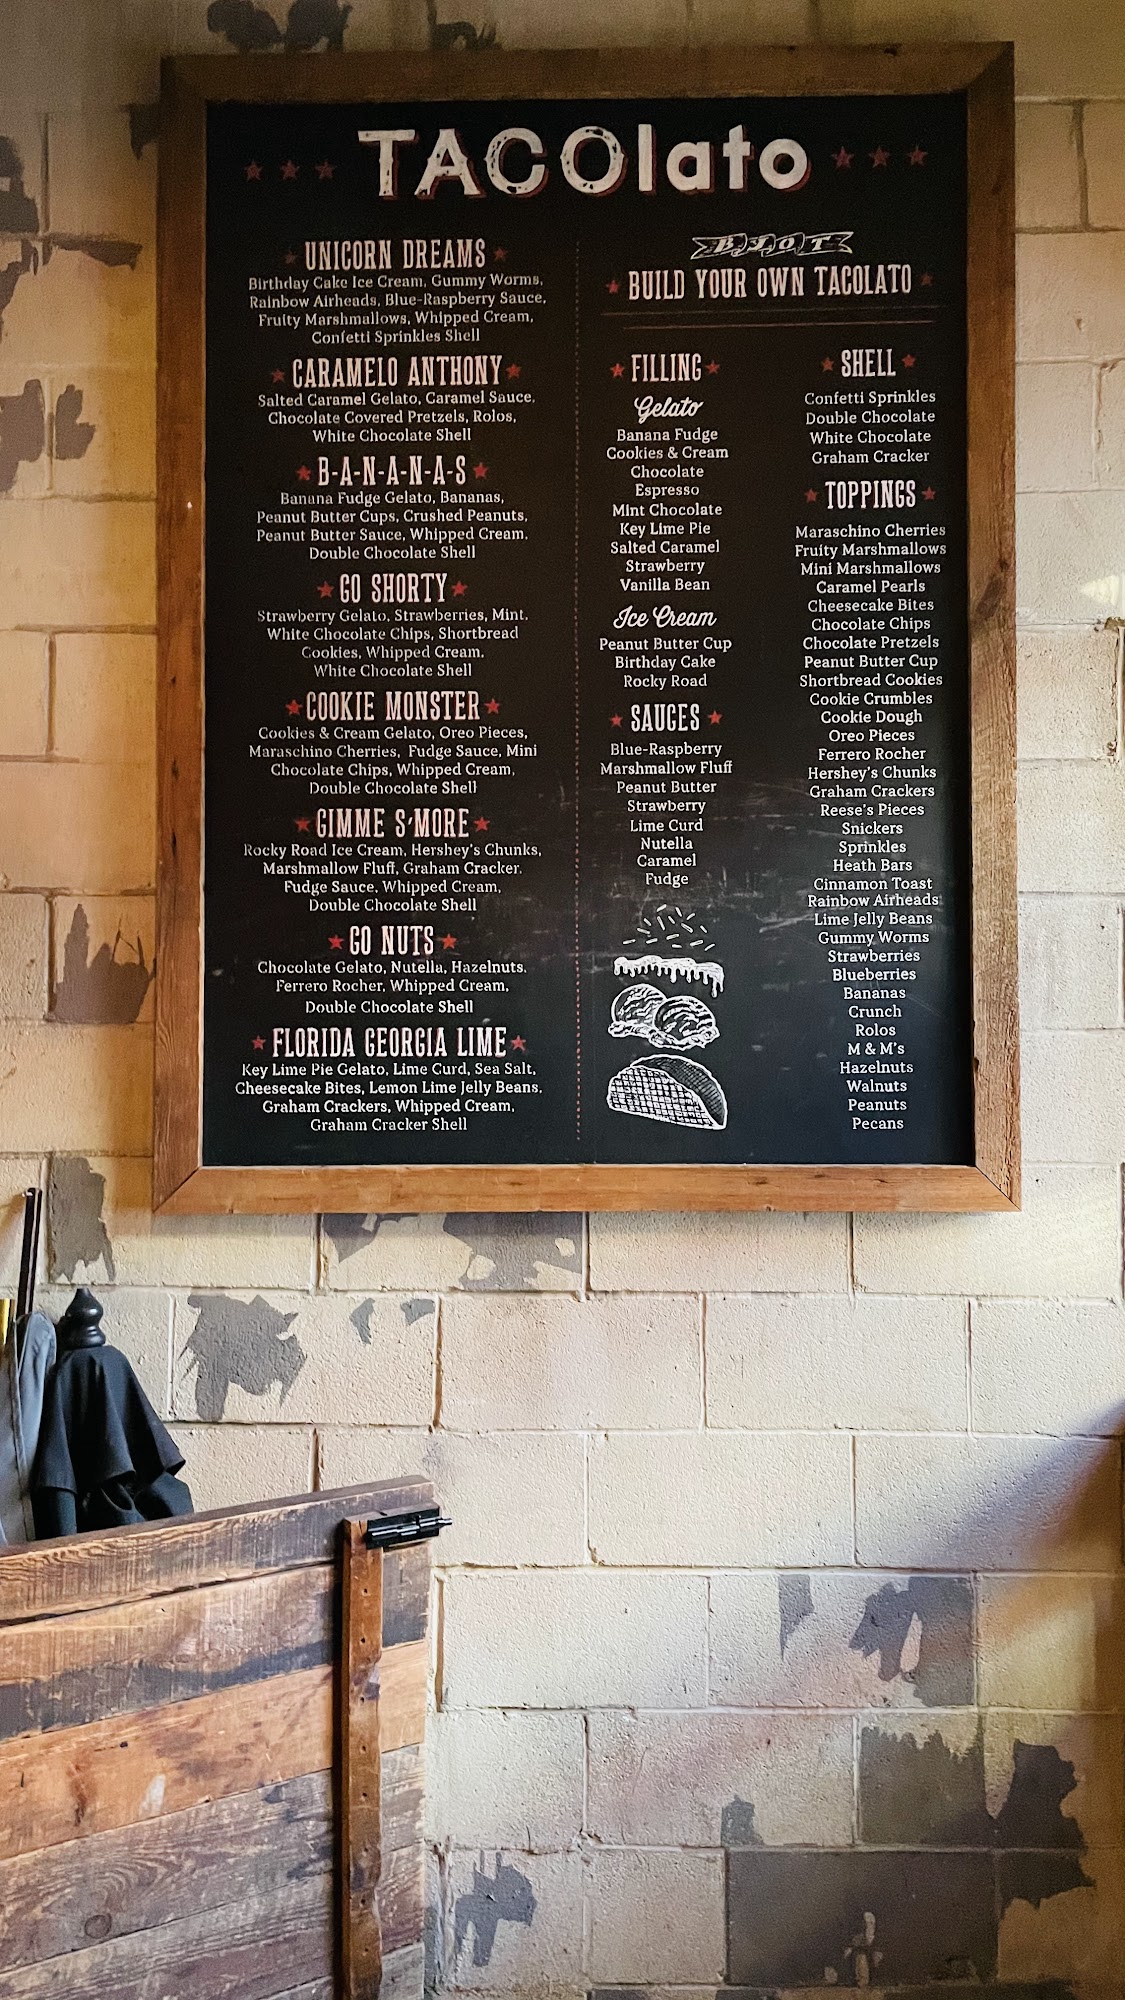 TACOlato
UNICORN DREAMS
Birthday Cake Ice Cream, Gummy Worms,
Rainbow Airheads, Blue-Raspberry Sauce,
Fruity Marshmallows, Whipped Cream,
Confetti Sprinkles Shell
CARAMELO ANTHONY
Salted Caramel Gelato, Caramel Sauce,
Chocolate Covered Pretzels, Rolos,
White Chocolate Shell
B-A-N-A-N-A-S
Banana Fudge Gelato, Bananas,
Peanut Butter Cups, Crushed Peanuts,
Peanut Butter Sauce, Whipped Cream,
Double Chocolate Shell
GO SHORTY
Strawberry Gelato, Strawberries, Mint,
White Chocolate Chips, Shortbread
Cookies, Whipped Cream,
White Chocolate Shell
COOKIE MONSTER
Cookies & Cream Gelato, Oreo Pieces,
Maraschino Cherries, Fudge Sauce, Mini
Chocolate Chips, Whipped Cream,
Double Chocolate Shell
GIMME S'MORE
Rocky Road Ice Cream, Hershey's Chunks,
Marshmallow Fluff, Graham Cracker,
Fudge Sauce, Whipped Cream,
Double Chocolate Shell
GO NUTS
Chocolate Gelato, Nutella, Hazelnuts,
Ferrero Rocher, Whipped Cream,
Double Chocolate Shell
FLORIDA GEORGIA LIME
Key Lime Pie Gelato, Lime Curd, Sea Salt,
Cheesecake Bites, Lemon Lime Jelly Beans,
Graham Crackers, Whipped Cream,
Graham Cracker Shell
BYOT
BUILD YOUR OWN TACOLATO
FILLING
Gelato
Banana Fudge
Cookies & Cream
Chocolate
Espresso
Mint Chocolate
Key Lime Pie
Salted Caramel
Strawberry
Vanilla Bean
Ice Cream
Peanut Butter Cup
Birthday Cake
Rocky Road
SAUCES
Blue-Raspberry
Marshmallow Fluff
Peanut Butter
Strawberry
Lime Curd
Nutella
Caramel
Fudge
SHELL
Confetti Sprinkles
Double Chocolate
White Chocolate
Graham Cracker
TOPPINGS
Maraschino Cherries
Fruity Marshmallows
Mini Marshmallows
Caramel Pearls
Cheesecake Bites
Chocolate Chips
Chocolate Pretzels
Peanut Butter Cup
Shortbread Cookies
Cookie Crumbles
Cookie Dough
Oreo Pieces
Ferrero Rocher
Hershey's Chunks
Graham Crackers
Reese's Pieces
Snickers
Sprinkles
Heath Bars
Cinnamon Toast
Rainbow Airheads
Lime Jelly Beans
Gummy Worms
Strawberries
Blueberries
Bananas
Crunch
Rolos
M & M's
Hazelnuts
Walnuts
Peanuts
Pecans